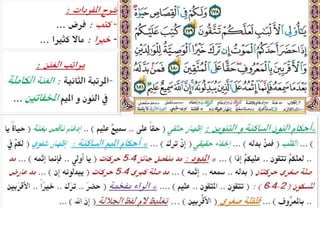 شرح المفردات :
- كتب : فرض ...
- خيرا : مالا كثيرا ...
مراتب الغنن :
-المرتبة الثانية : الغنة الكاملة
في النون و الميم الخفاتين ...
وَلَكُمْ فِي الْقِصَاصِ حَيَوٰةٌ
يَٰٓأُو۟لِي الْأَلْبَٰبِ لَعَلَّكُمْ تَتَّقُونَ ١٧٩ كُتِبَ عَلَيْكُمْ
إِذَا حَضَرَ أَحَدَكُمُ الْمَوْتُ إِن تَرَكَ خَيْرًا الْوَصِيَّةُ لِلْوَٰلِدَيْنِ
وَالْأَقْرَبِينَ بِالْمَعْرُوفِ حَقًّا عَلَى الْمُتَّقِينَ ١٨٠ فَمَنۢ بَدَّلَهُۥ
بَعْدَمَا سَمِعَهُۥ فَإِنَّمَآ إِثْمُهُۥ عَلَى الَّذِينَ يُبَدِّلُونَهُۥٓ إِنَّ اللَّهَ سَمِيعٌ عَلِيمٌ ١٨١
«أحكام النون الساكنة و التنوين : إظهار حلقي ( حقا على .. سميع عليم ) ... إدغام ناقص بغنة ( حياة يا
) ... القلب ( فمن بدله ) ... إخفاء حقيقي ( إن ترك ) ... «أحكام الميم الساكنة : إظهار شفوي ( لكم في
.. لعلكم تتقون .. عليكم إذا ) ... «المدود : مد منفصل جائز 5.4 حركات ( يا أولي .. فإنما إثمه ) ... مد
صلة صغرى حركتان ( بدله .. سمعه .. إثمه ) ... مد صلة كبرى 5.4 حركات ( يبدلونه إن ) ... مد عارض
للسكون ( 6.4.2 ) : ( تتقون .. المتقون .. عليم ) .... «الراء مفخمة ( حضر .. ترك .. خيرا .. الأقربين
.. بالمعروف ) ... قلقلة صغرى ( الأقربين ) ... تغليظ لام لفظ الجلالة ( إن الله ) ...